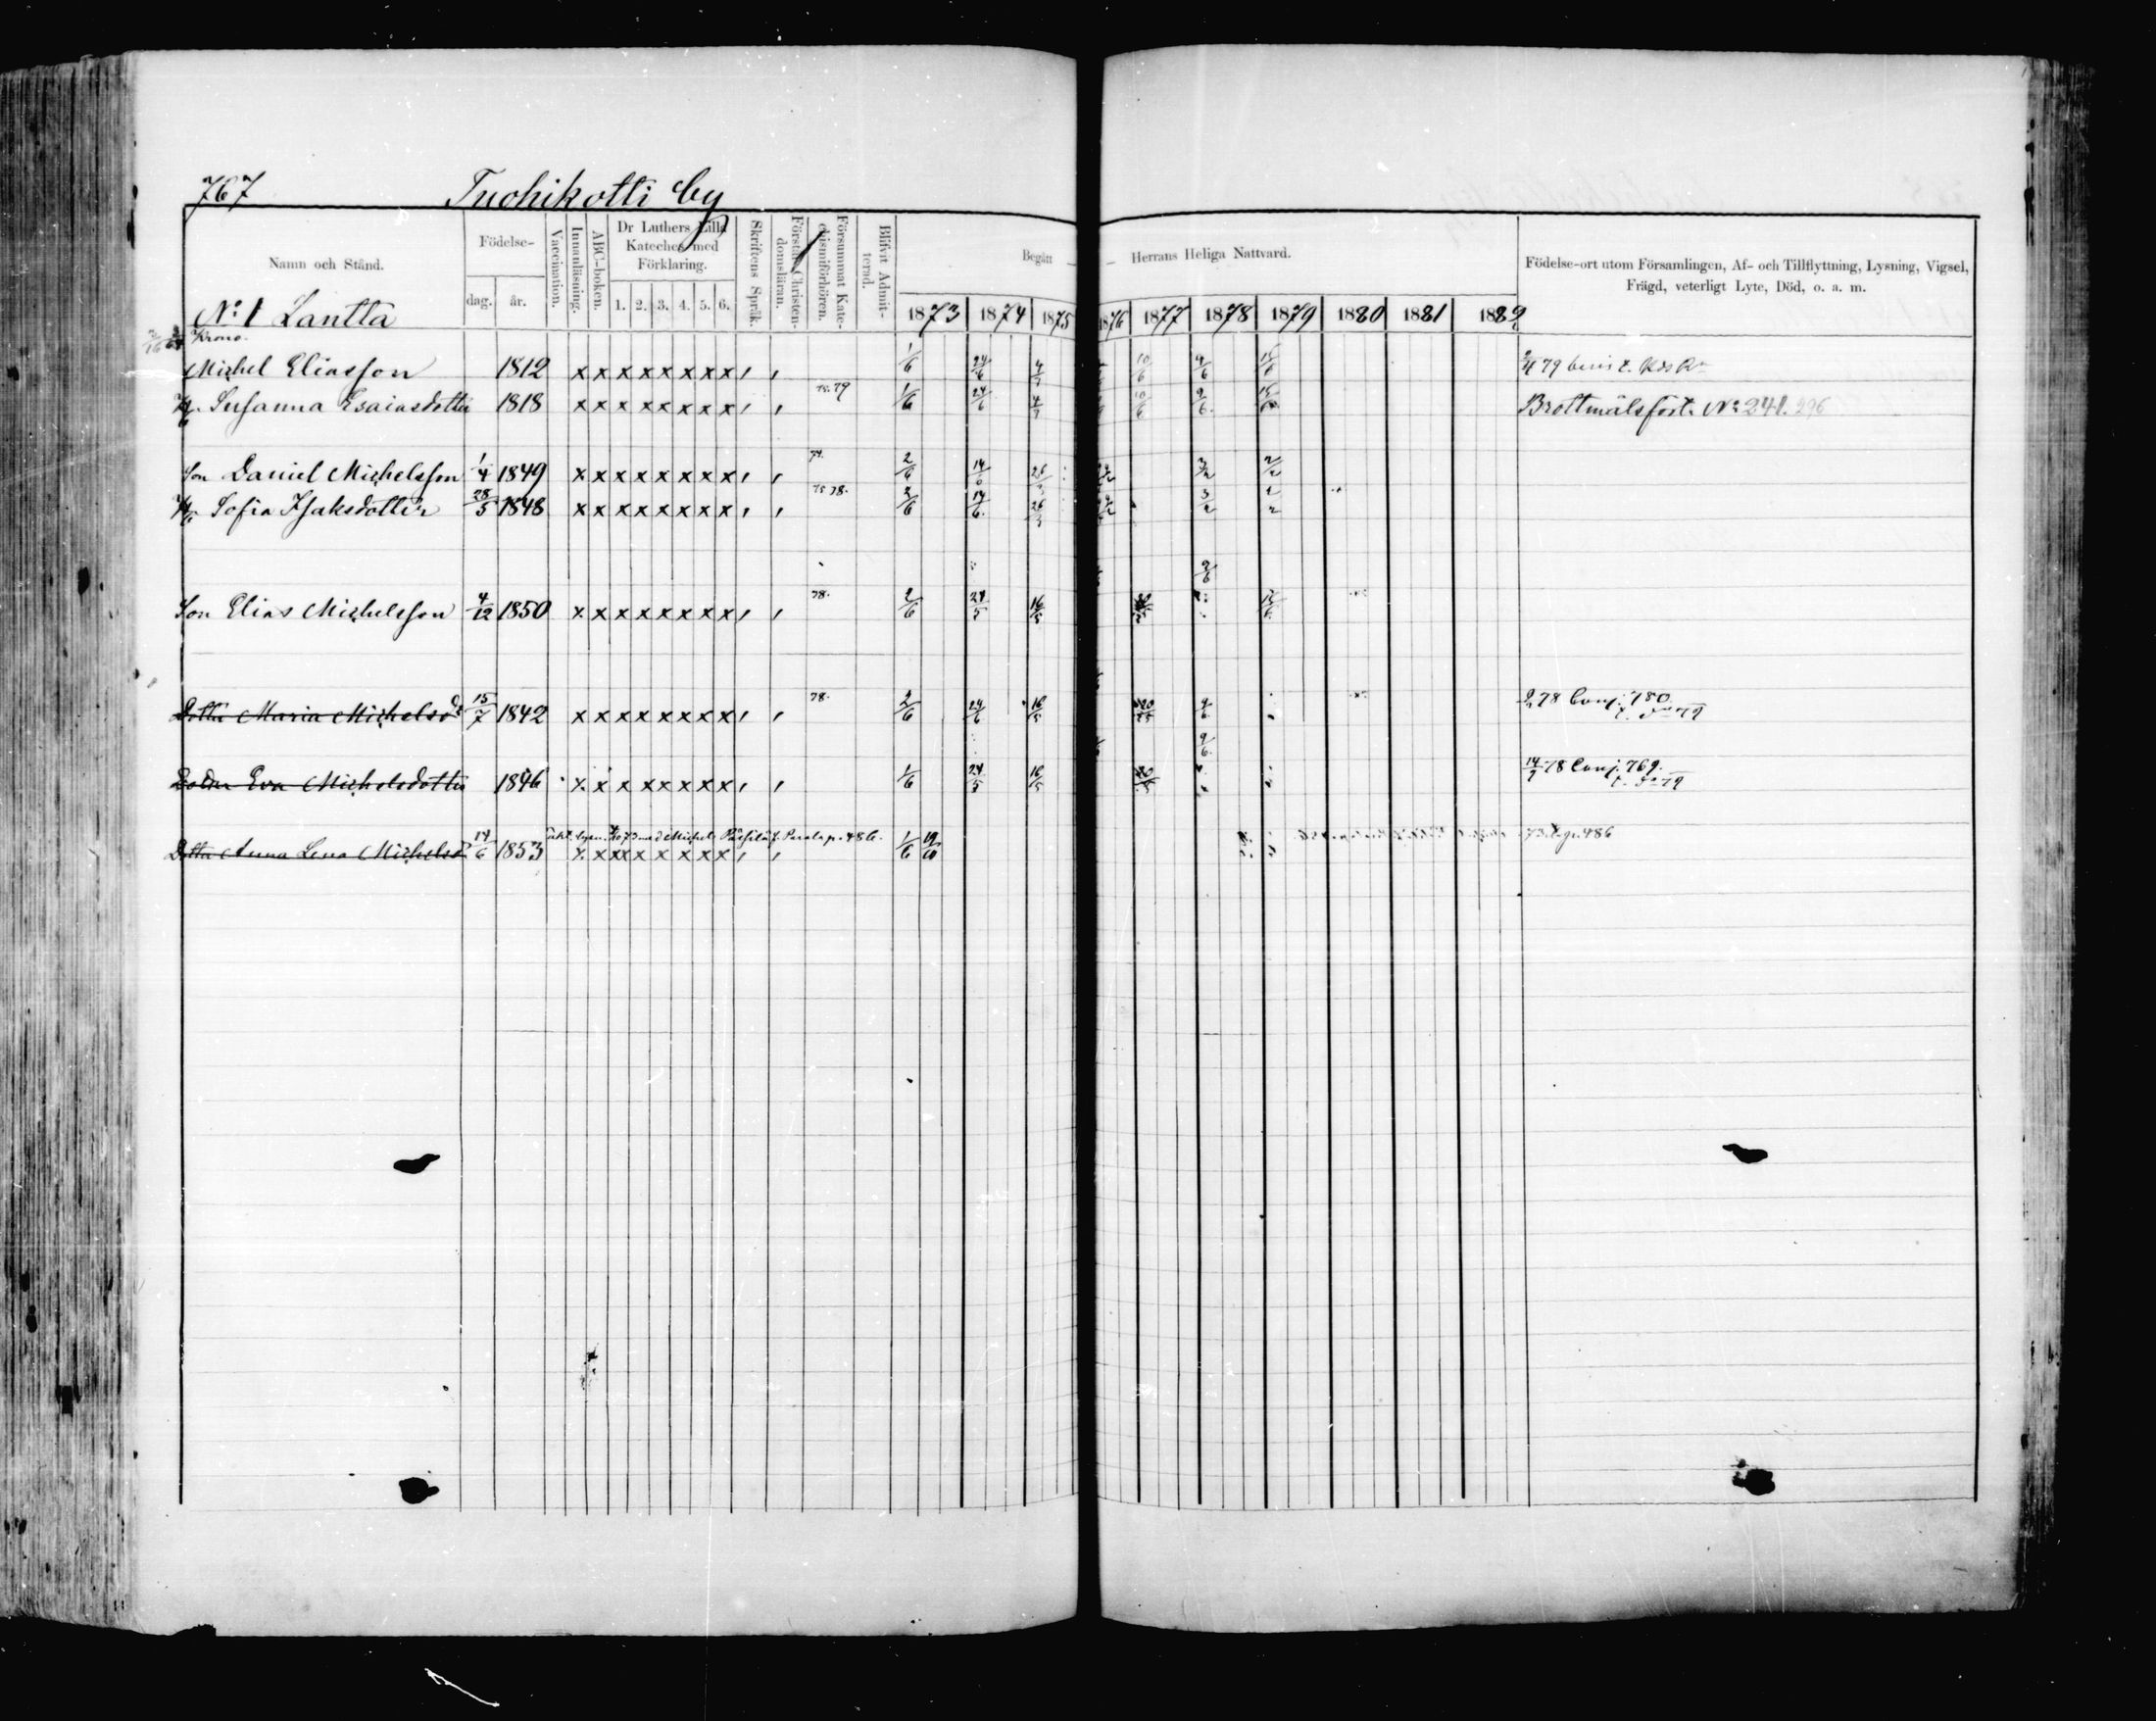 767 Tuohikotti by
Namn och Stånd.
Födelse-
dag. år.
Vaccination.
Innanläsning.
ABC-boken.
Dr Luthers Lilla Kateches med Förklaring.
1. 2. 3. 4. 5. 6.
Skriftens Språk.
Förstår Christendomsläran.
Försummat Katechismiförhören.
Blifvit Admitterad.
Begått Herrans Heliga Nattvard.
1873 1874 1875 1876 1877 1878 1879 1880 1881 1882
Födelse-ort utom Församlingen, Af- och Tillflyttning, Lysning, Vigsel,
Frägd, veterligt Lyte, Död, o. a. m.
No: 1 Lantta
Krono.
Michel Eliasson 1812 x x x x x x x x 1/6 24/6 10/6 9/6
H. Susanna Esaiasdotter 1818 x x x x x x x x 79 1/6 24/6 10/6 9/6 Brottmålsfört. No 241. 296
Son Daniel Michelsson 1/4 1849 x x x x x x x x 2/6 3/2 2/2
H. Sofia Isaksdotter 28/5 1848 x x x x x x x x 78. 2/6 14/6 3/2
9/6
Son Elias Michelsson 4/12 1850 x x x x x x x x 78. 2/6 24/5 16/5
Dotter Maria Michelsd. 15/7 1842 x x x x x x x x 78. 2/6 24/6 16/5 9/6 78 Conj. 780.
9/6
Dotter Eva Michelsdotter 1846 x x x x x x x x 1/6 24/5 16/5 14/7 78 Conj. 769.
73 med Michel p. 486.
Dotter Anna Lena Michelsd. 14/6 1853 x x x x x x x x 1/6 19/10 p. 486